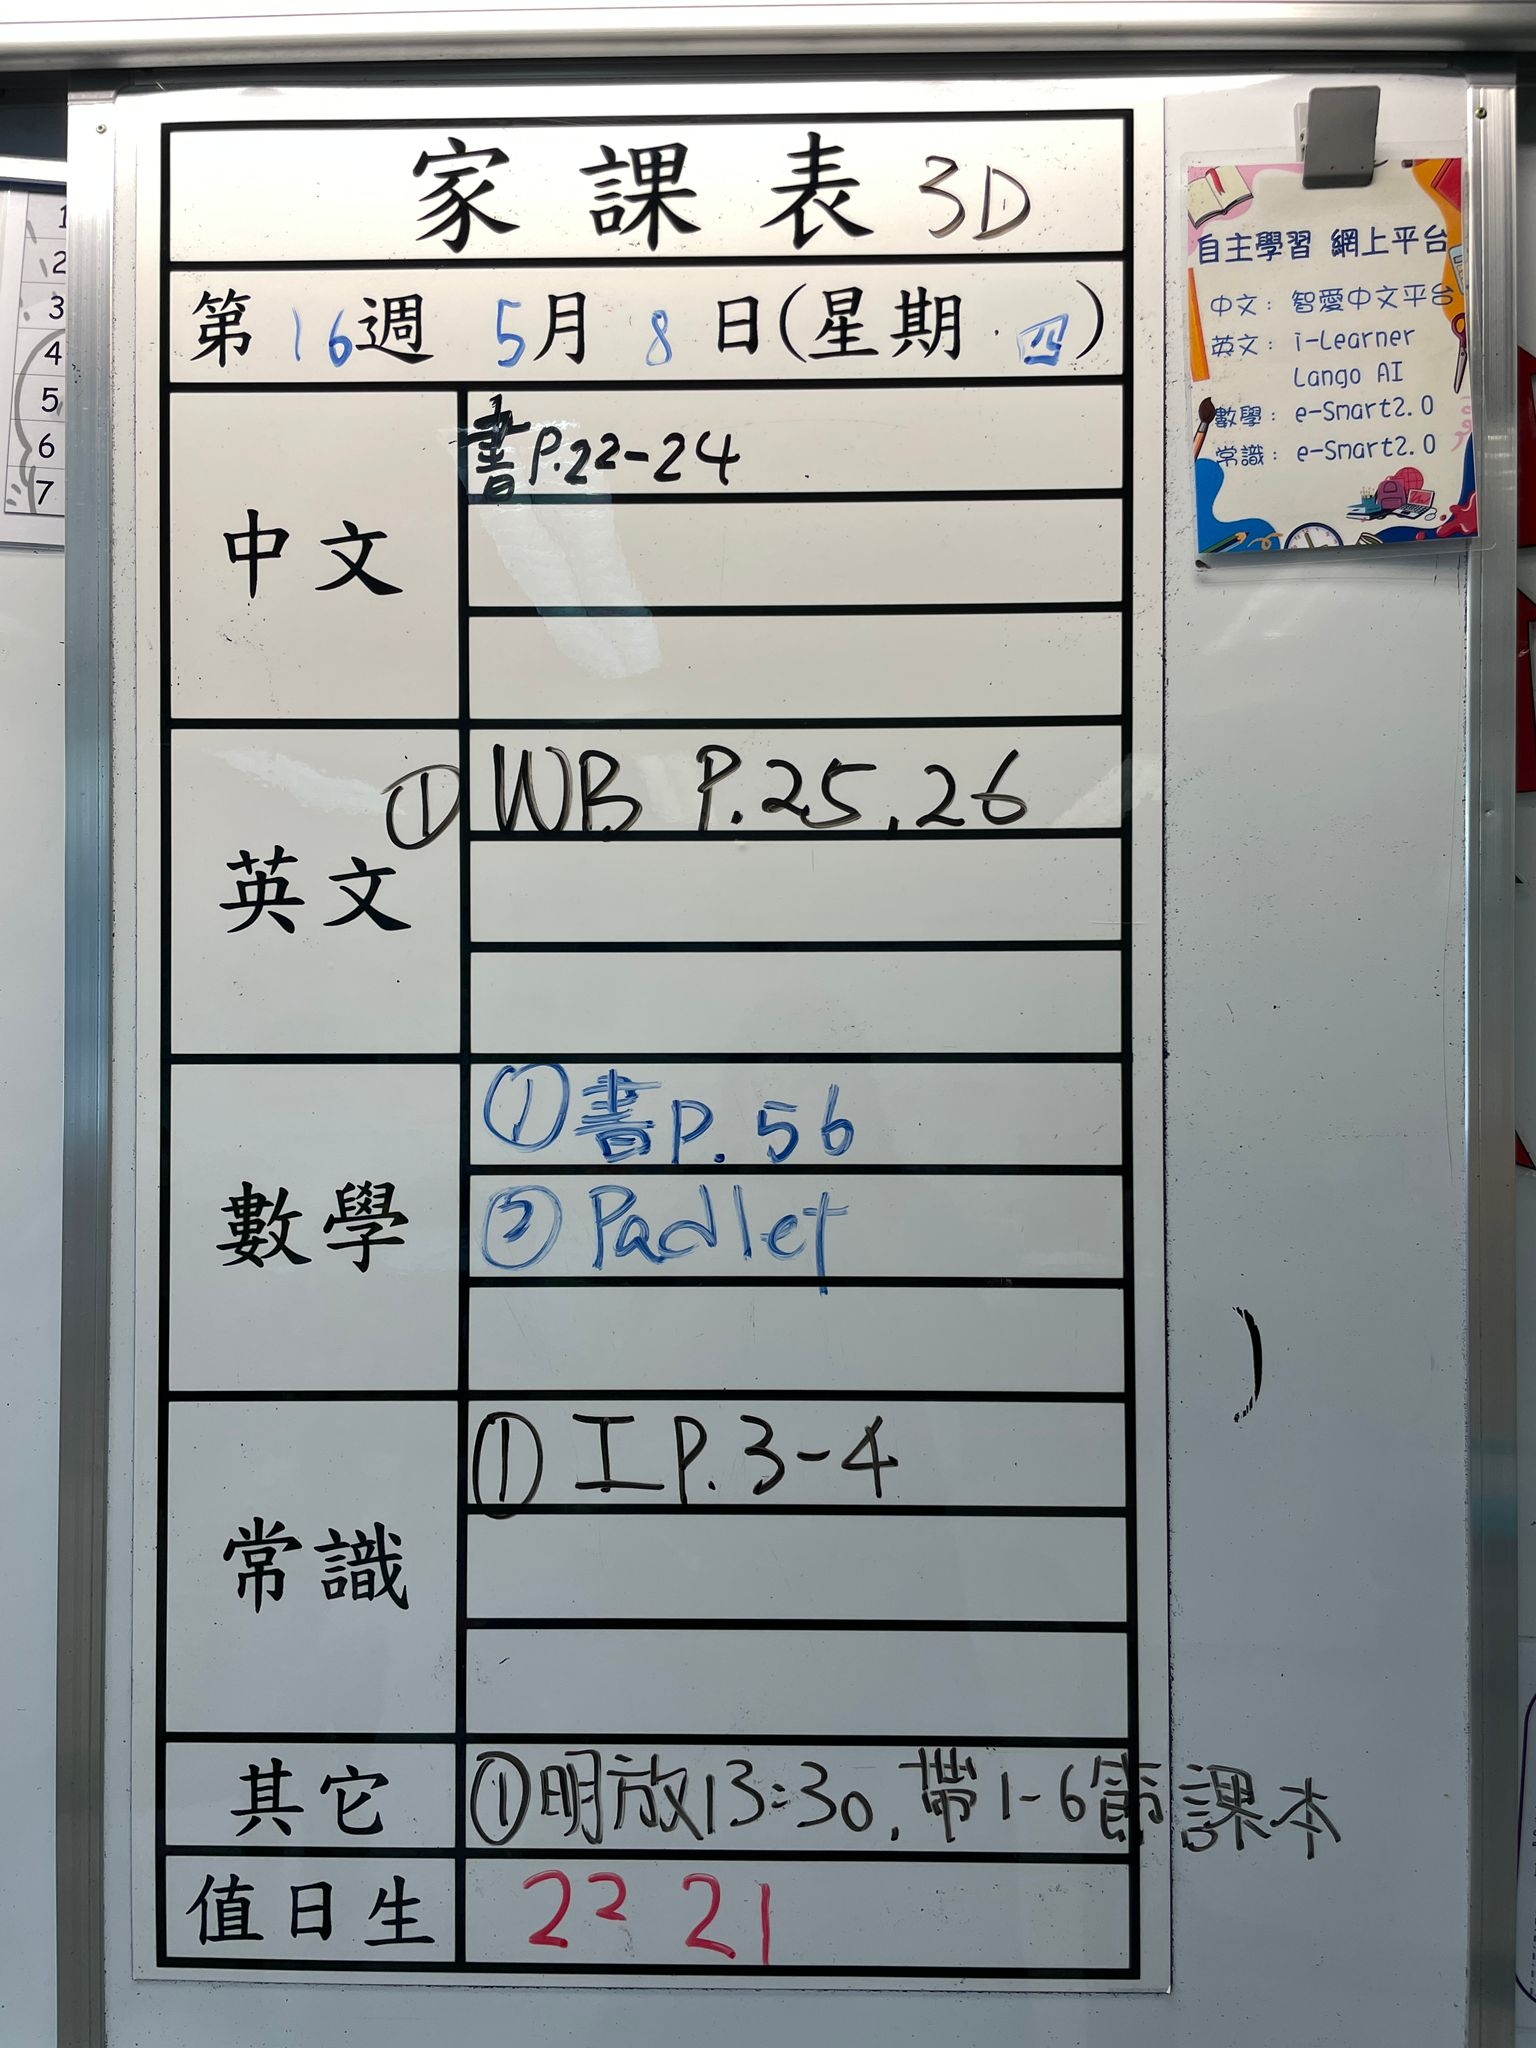 家課表 3D
第16週 5月8日(星期四)
中文
書P.22-24
英文
① WB P.25,26
數學
① 書P.56
② Padlet
常識
① 工P.3-4
其它
①明放13:30,帶1-6節課本
值日生
22 21
自主學習 網上平台
中文: 智愛中文平台
英文: i-Learner
Lango AI
數學: e-Smart2.0
常識: e-Smart2.0
1
2
3
4
5
6
7